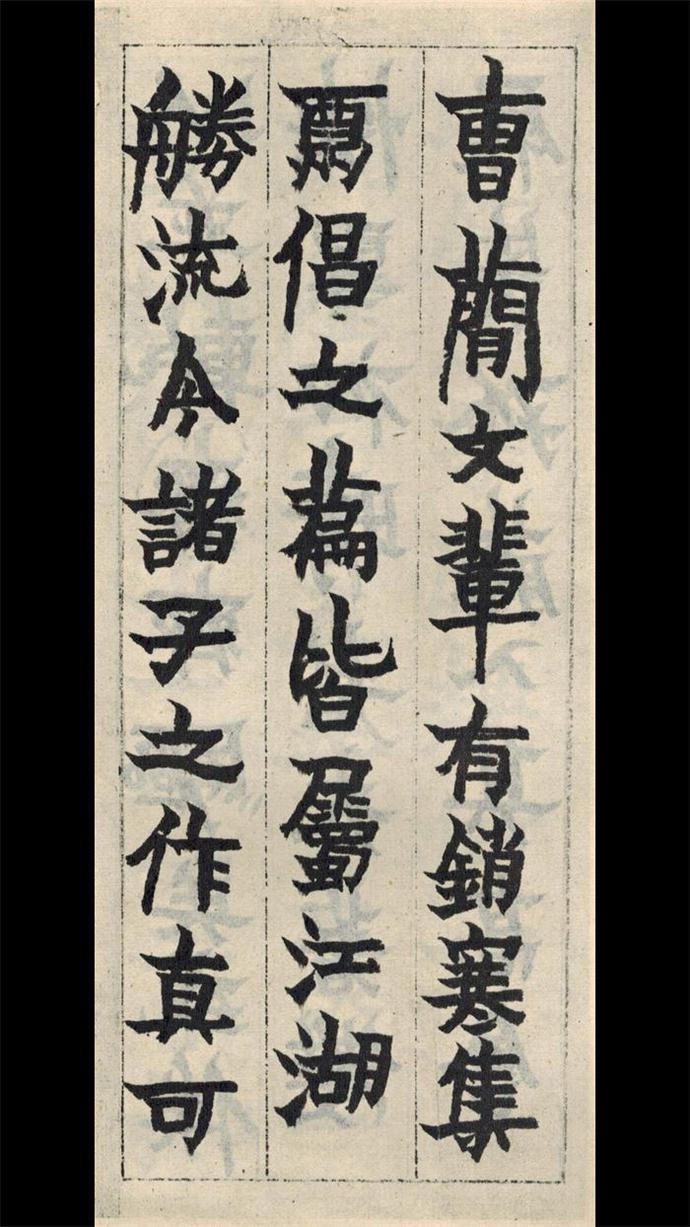 曺簡文輩有銷寒集
倡之篇皆屬江湖
勝流今諸子之作真可